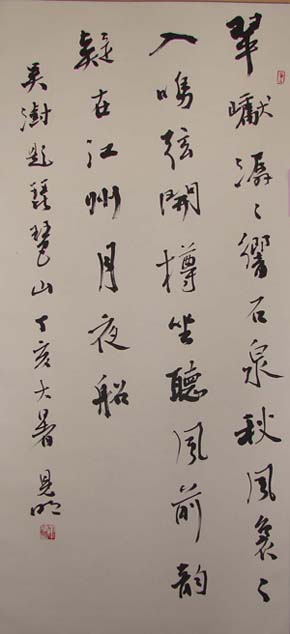 翠巘潺々響石泉秋風裊々
入鳴弦開樽坐聽風前韵
疑在江州月夜船
吴澍題琵琶山丁亥大暑